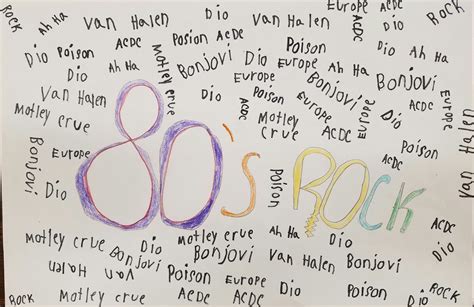 ROCK
Ah Ha
Van Halen
Dio
Van Halen
Europe
Dio
ROCK
Dio
Poison
ACDC
Posion
ACDC
Poison
ACDC
Ah Ha
Dio
Dio
Ah Ha
Motley
crue
Bonjovi
Dio
Europe
Ah Ha
Bonjovi
Dio
Europe
Van Halen
Dio
Poison
Europe
Bonjovi
ACDC
Motley crue
ACDC
Motley
Crue
ACDC
Europe
Europe
Van Halen
Bonjovi
Europe
Dio
80's ROCK
Poison
Dio
Poison
ACDC
Dio
ACDC
Motley crue
Dio
Motley crue
Ah Ha
Dio
Bonjovi
Bonjovi
Van Halen
Bonjovi
Dio
Van Halen
Poison
Europe
Dio
Poison
Europe
ROCK
Ah Ha
Motley crue
ACDC
Dio
ACDC
Ah Ha
ROCK